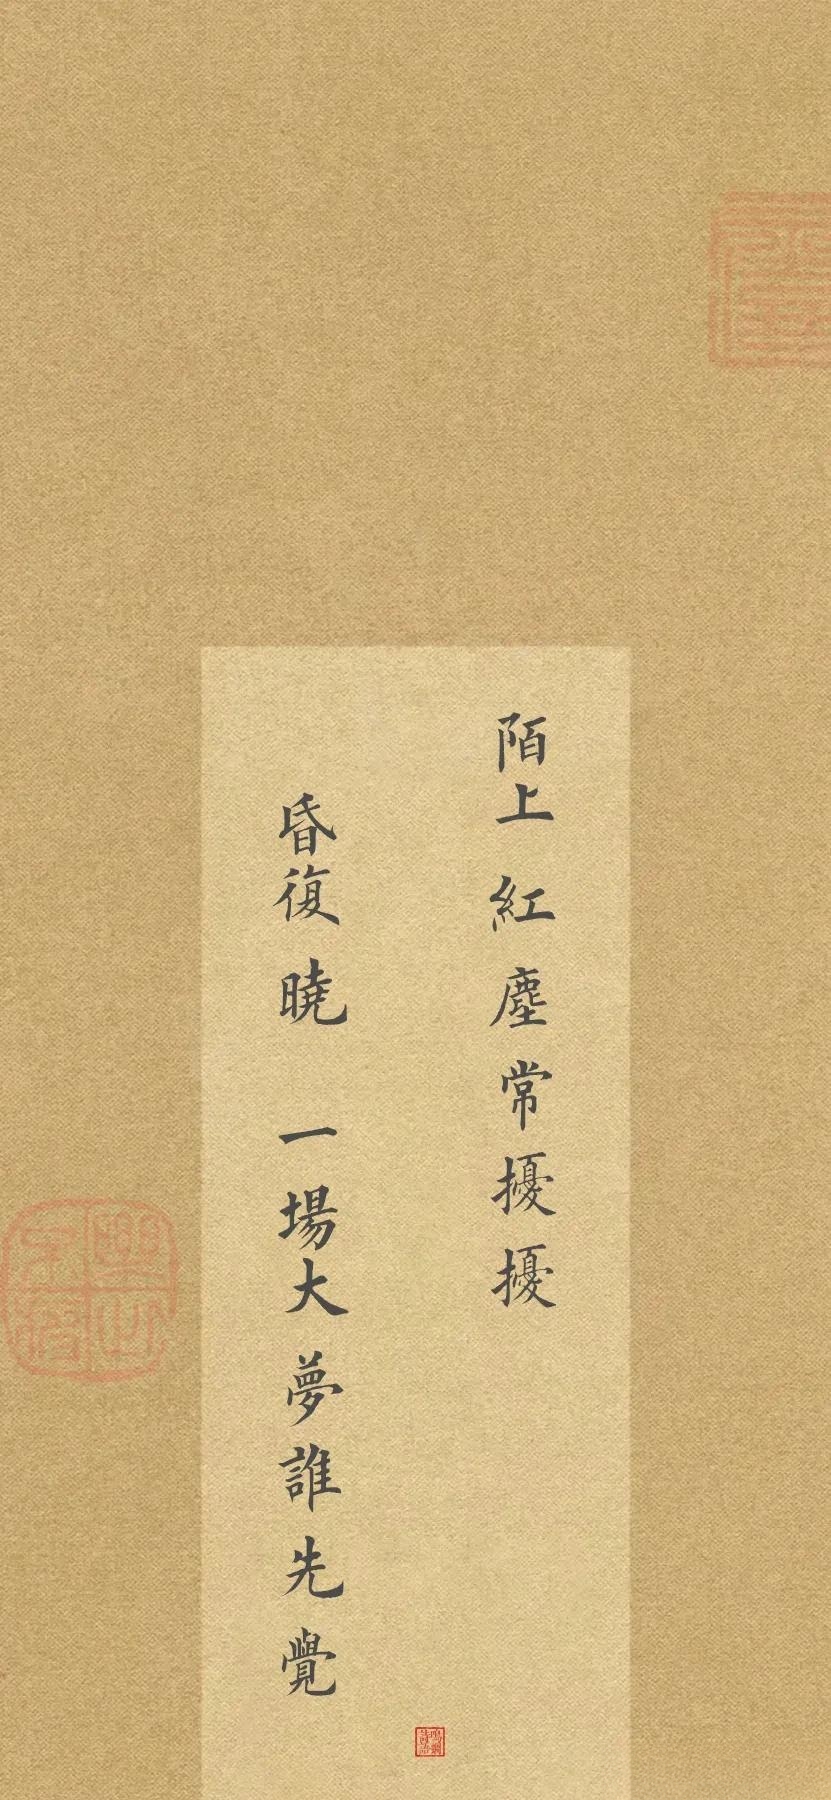 陌上紅塵常擾擾
昏復曉 一場大夢誰先覺